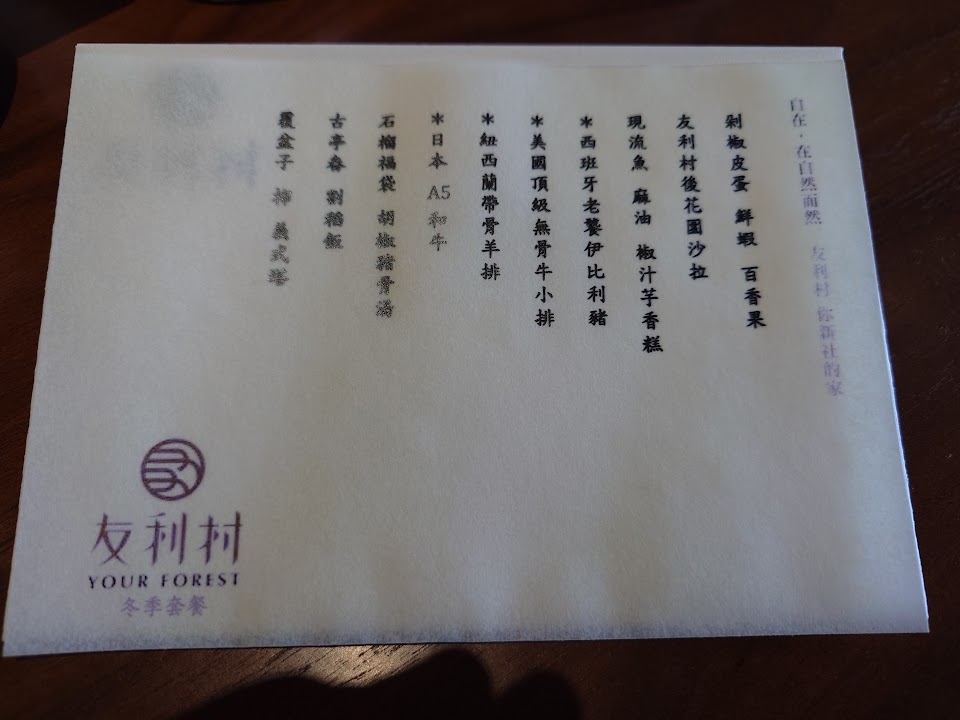 自在，在自然而然 友利村 你新社的家
剁椒皮蛋 鮮蝦 百香果
友利村後花園沙拉
現流魚 麻油 椒汁芋香糕
＊西班牙老饕伊比利豬
＊美國頂級無骨牛小排
＊紐西蘭帶骨羊排
＊日本 A5 和牛
石榴福袋 胡椒豬骨湯
古亭畚 割稻飯
覆盆子 柿 義式塔
友利村
YOUR FOREST
冬季套餐